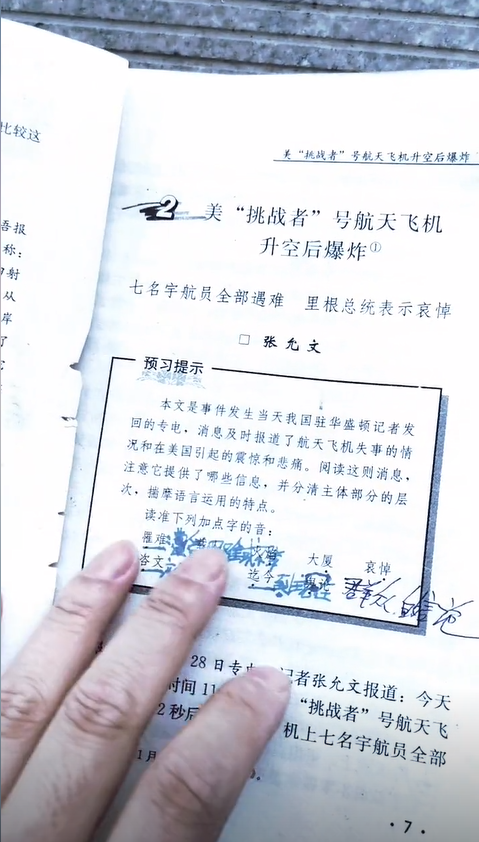 比较这
吾报
称：
射
从
岸
了
美“挑战者”号航天飞机升空后爆炸
2 美“挑战者”号航天飞机
升空后爆炸①
七名宇航员全部遇难 里根总统表示哀悼
□ 张允文
预习提示
本文是事件发生当天我国驻华盛顿记者发
回的专电，消息及时报道了航天飞机失事的情
况和在美国引起的震惊和悲痛。阅读这则消息，
注意它提供了哪些信息，并分清主体部分的层
次，揣摩语言运用的特点。
读准下列加点字的音：
罹难 大厦 哀悼
咨文 迄今
28日专电 记者张允文报道：今天
时间11 “挑战者”号航天飞
2秒后 机上七名宇航员全部
1月
·7·